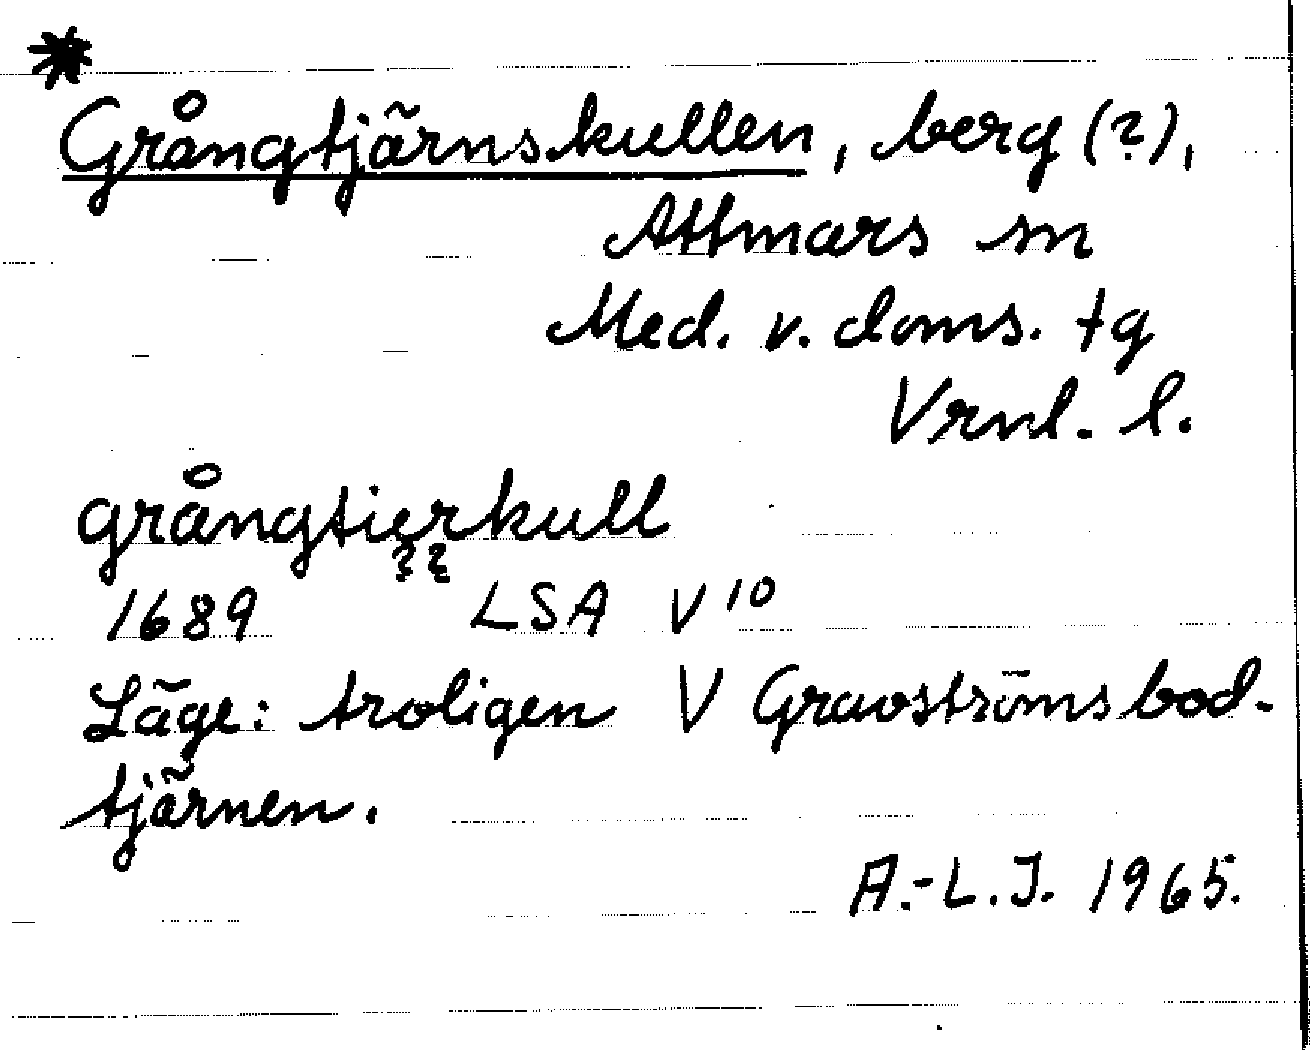 *
Grångtjärnskullen, berg (?),
Attmars sn
Med. v. doms. tg
Vrnl. l.
grångtierkull
? ?
1689 LSA V 10
Läge: troligen V Gravströmsbod-
tjärnen.
A.-L.J. 1965.